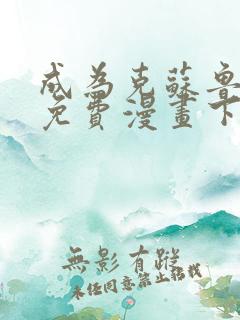 成為克蘇魯
免費漫畫下
無影有蹤
未經同意禁止轉載